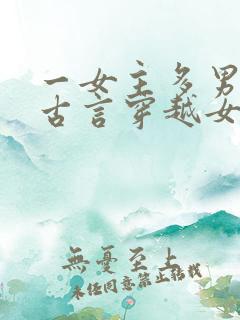 一女主多男
古言穿越女
無憂至上
未经同意禁止转载